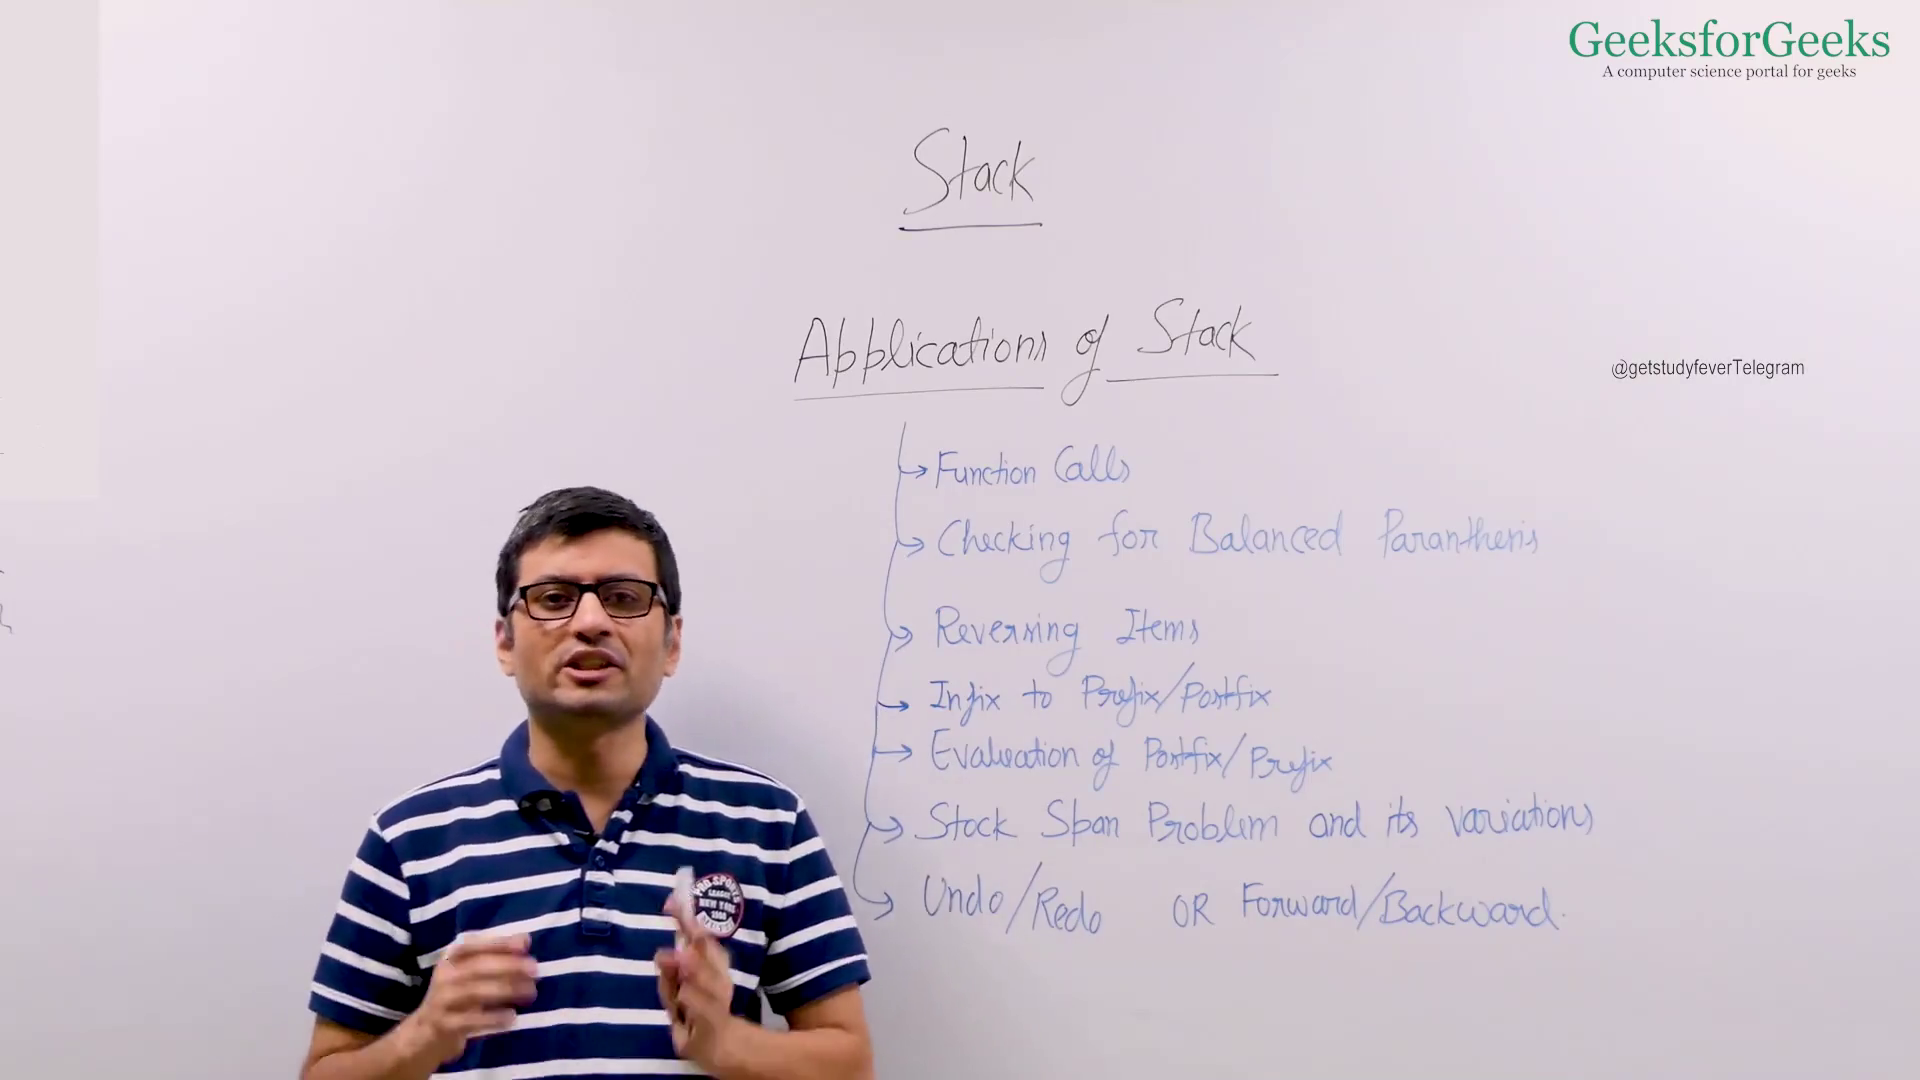 GeeksforGeeks
A computer science portal for geeks
Stack
Applications of Stack
@getstudyfeverTelegram
Function Calls
Checking for Balanced Paranthesis
Reversing Items
Infix to Prefix/Postfix
Evaluation of Postfix/Prefix
Stock Span Problem and its variations
Undo/Redo OR Forward/Backward.
PRO SPORTS
LEAGUE
NEW YORK